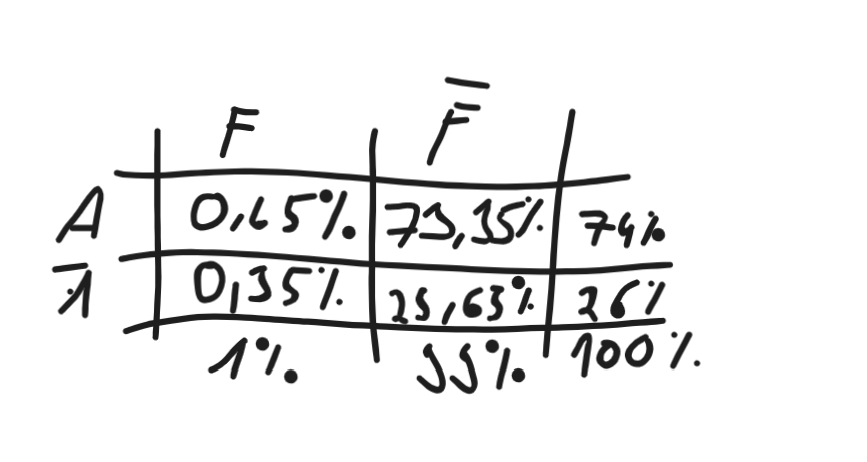 F F̅
A 0,65% 73,35% 74%
A̅ 0,35% 25,65% 26%
1% 99% 100%